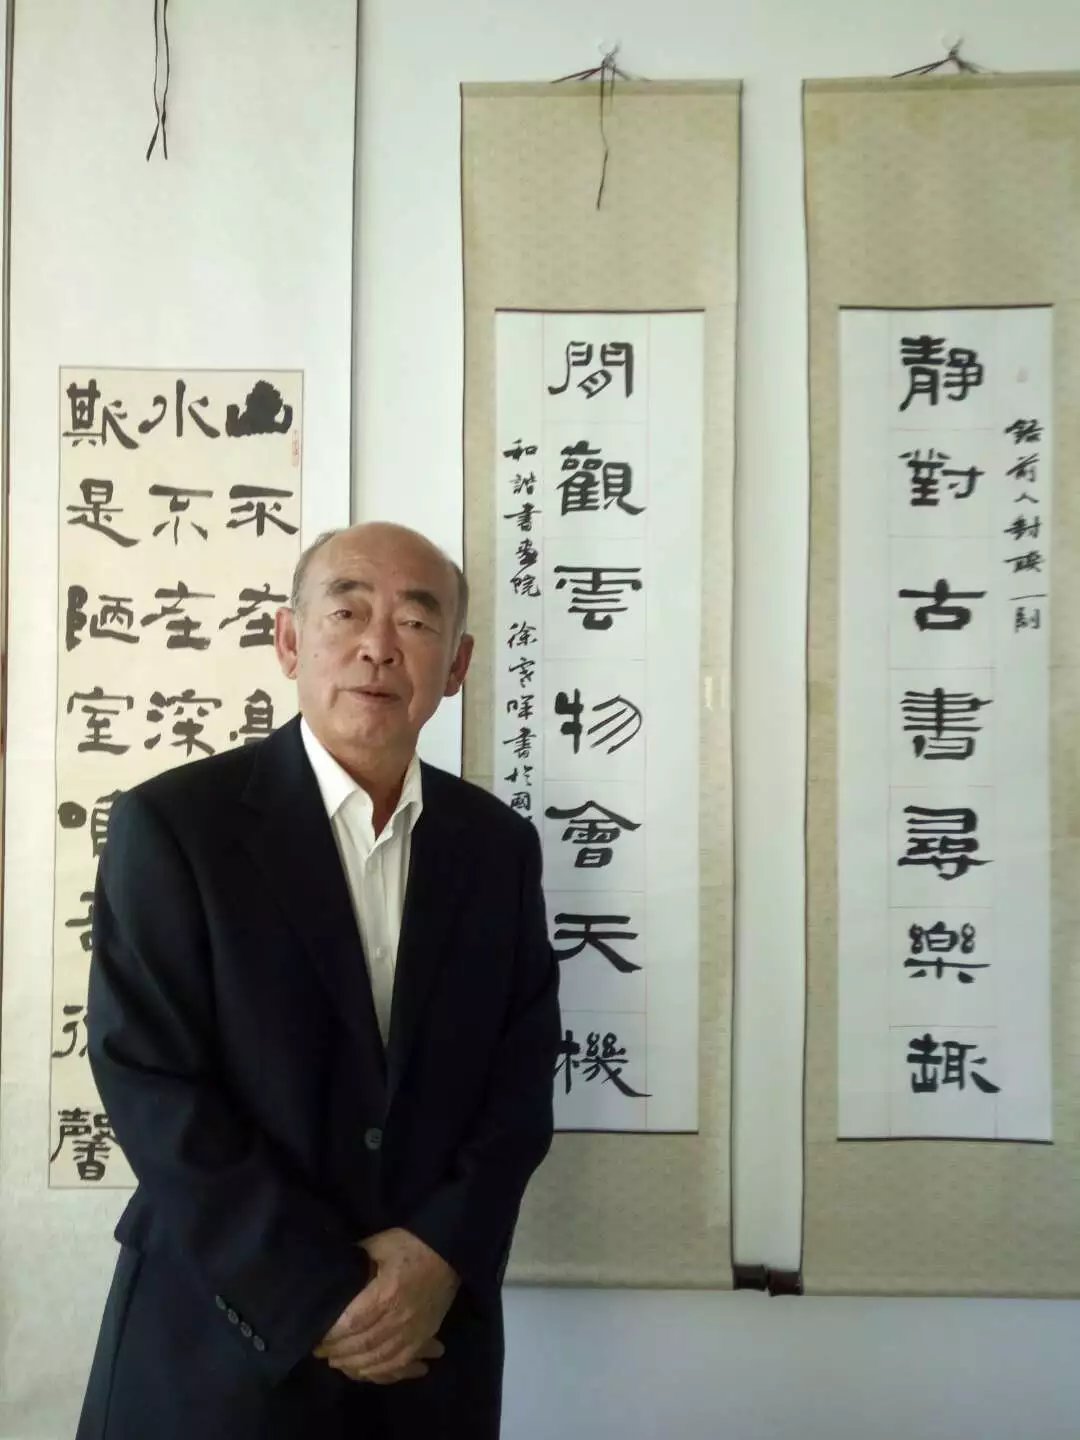 錄前人對聯一副
靜對古書尋樂趣
閒觀雲物會天機
和諧書畫院 徐書於國
山不在高
水不在深
斯是陋室唯吾德馨